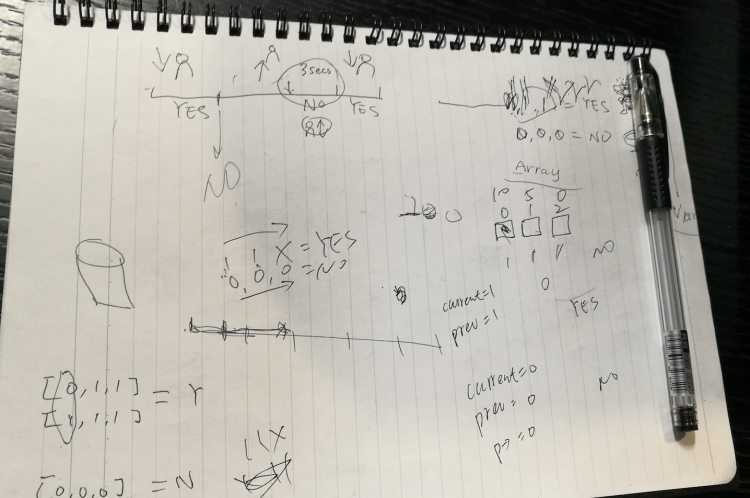 3secs
YES NO YES
NO
= YES
0,0,0 = NO
Array
10 5 0
0 1 2
1 1 1 NO
0
YES
1 1 X = YES
0,0,0 = NO
current=1
prev=1
current=0
prev=0
NO
P7=0
[0,1,1]
[1,1,1] = Y
[0,0,0] = N
11X